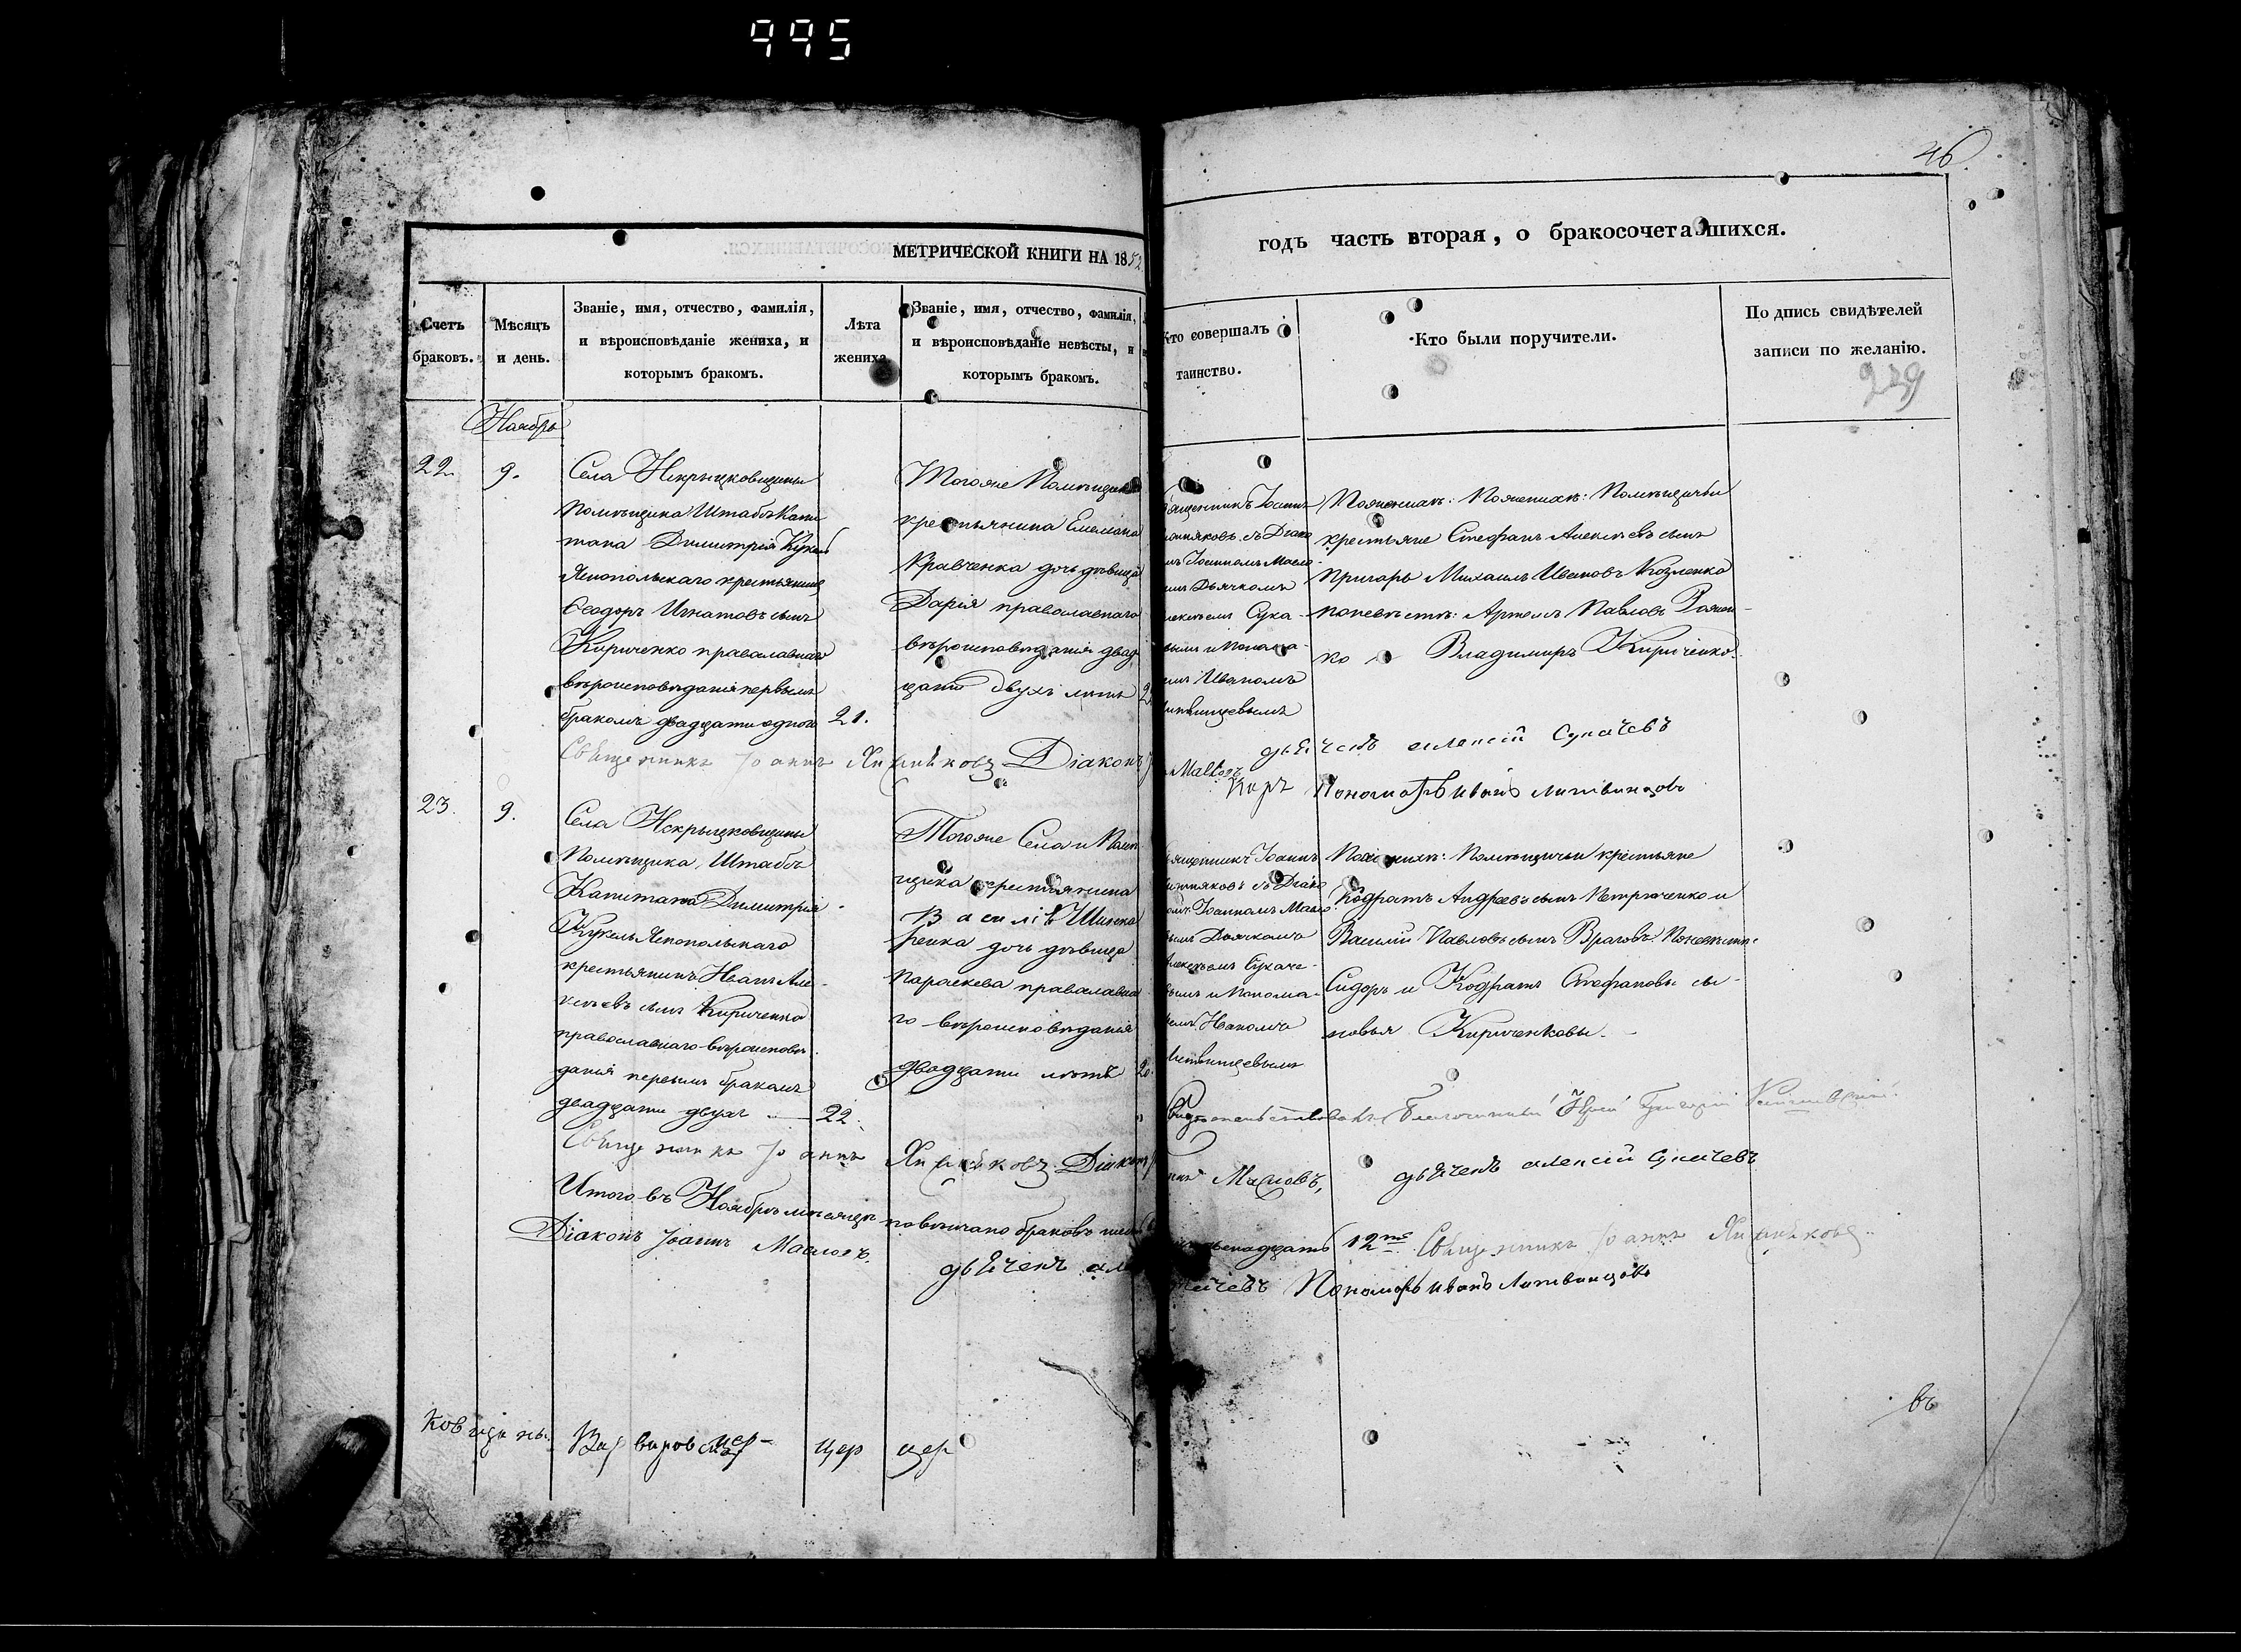 995
46
МЕТРИЧЕСКОЙ КНИГИ НА 1852
годъ часть вторая, о бракосочетавшихся.
Счетъ браковъ.
Мѣсяцъ и день.
Званіе, имя, отчество, фамилія, и вѣроисповѣданіе жениха, и которымъ бракомъ.
Лѣта жениха
Званіе, имя, отчество, фамилія, и вѣроисповѣданіе невѣсты, и которымъ бракомъ.
Кто совершалъ таинство.
Кто были поручители.
Подпись свидѣтелей записи по желанію.
229
Ноябрь
22.
9.
Села Искрысковщины
Помѣщика Штабсъ Капи
тана Димитрія Кукель
Яснопольскаго крестьянинъ
Ѳеодоръ Игнатовъ сынъ
Кириченко православнаго
вѣроисповѣданія первымъ
бракомъ двадцати одного
21.
Тогоже Помѣщика
крестьянина Емеліана
Кравченка дочь дѣвица
Дарія православнаго
вѣроисповѣданія двад
цати двухъ лѣтъ
Священникъ Іоаннъ
съ Діако
Іоанномъ Масло
Дьячкомъ
Сука
вымъ и Понома
Иваномъ
Литвинцевымъ
Поженихѣ: Помѣщичьи
крестьяне Стефанъ Алексѣевъ сынъ
Михаилъ Ивановъ Козленко
поневѣстѣ: Артемъ Павловъ
ко Владимиръ Кириченко.
Священникъ Іоаннъ Хижняковъ Діаконъ
Масловъ
дьячекъ Алексій Сукачевъ
Пономарь Иванъ Литвинцовъ
23.
9.
Села Искрысковщины
Помѣщика Штабсъ
Капитана Димитрія
Кукель Яснопольскаго
крестьянинъ Иванъ Але
ксѣевъ сынъ Кириченко
православнаго вѣроисповѣ
данія первымъ бракомъ
двадцати двухъ
22.
Тогоже Села и Помѣ
щика крестьянина
Василія Шинка
ренка дочь дѣвица
Параскева православна
го вѣроисповѣданія
двадцати лѣтъ
20.
Священникъ Іоаннъ
Хижняковъ съ Діако
Іоанномъ Масло
вымъ Дьячкомъ
Алексѣемъ Сукаче
вымъ и Понома
ремъ Иваномъ
Литвинцевымъ
Поженихѣ: Помѣщичьи крестьяне
Кодратъ Андреевъ сынъ Петриченко и
Василій Павловъ сынъ Враговъ. Поневѣстѣ:
Сидоръ и Кодратъ Стефановы сы
новья Кириченковы.
Свидѣтельствовалъ Благочинный Іерей Григорій
Священникъ Іоаннъ Хижняковъ Діаконъ
Масловъ,
дьячекъ Алексій Сукачевъ
Итого въ Ноябрѣ мѣсяцѣ повѣнчано браковъ
12
Священникъ Іоаннъ Хижняковъ
Діаконъ Іоаннъ Масловъ,
дьячекъ
Пономарь Иванъ Литвинцовъ
ковщины
цер
цер
въ